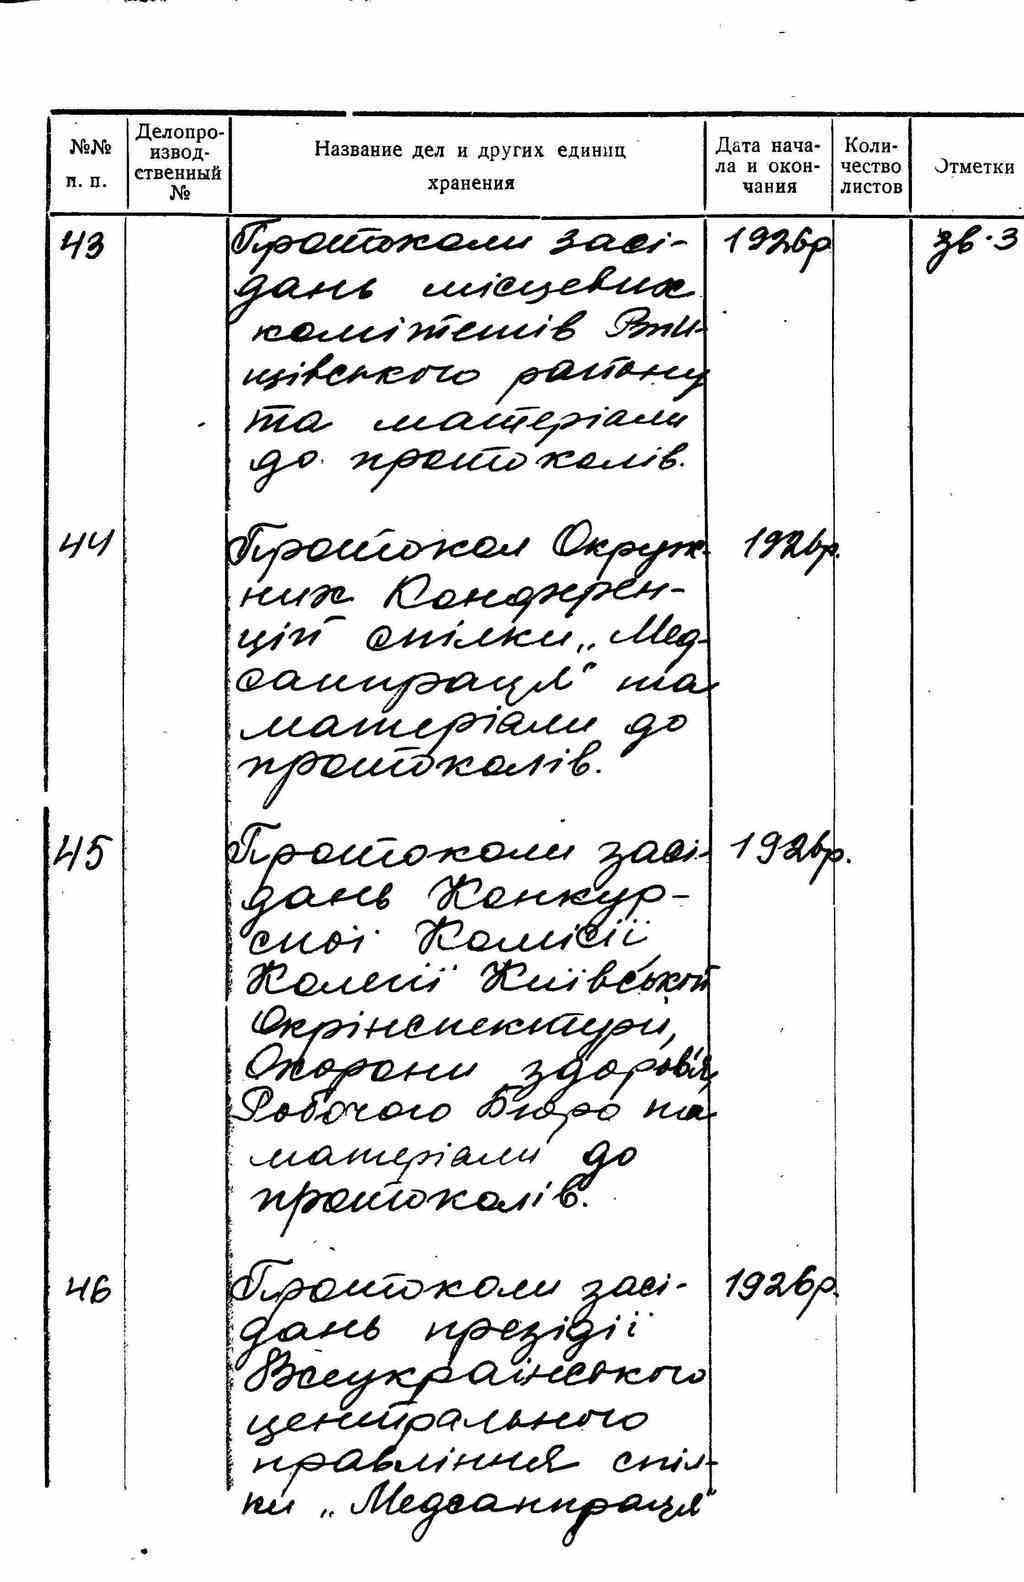 №№ п. п.
Делопро-
извод-
ственный
№
Название дел и других единиц
хранения
Дата нача-
ла и окон-
чания
Коли-
чество
листов
Отметки
43 Протоколи засі- 1926р зв. 3
дань місцевих
комітетів
щівського району
та матеріали
до протоколів.
44 Протокол Окруж- 1926р.
них Конферен-
цій спілки „Мед-
санпраця" та
матеріали до
протоколів.
45 Протоколи засі- 1926р.
дань Конкур-
сноі Комісіі,
Колегіі Киівськоі
Окрінспектури,
Охорони здоров'я,
Робочого Бюро та
матеріали до
протоколів.
46 Протоколи засі- 1926р.
дань презідіі
Всеукраінського
центрального
правління спіл-
ки „Медсанпраця"